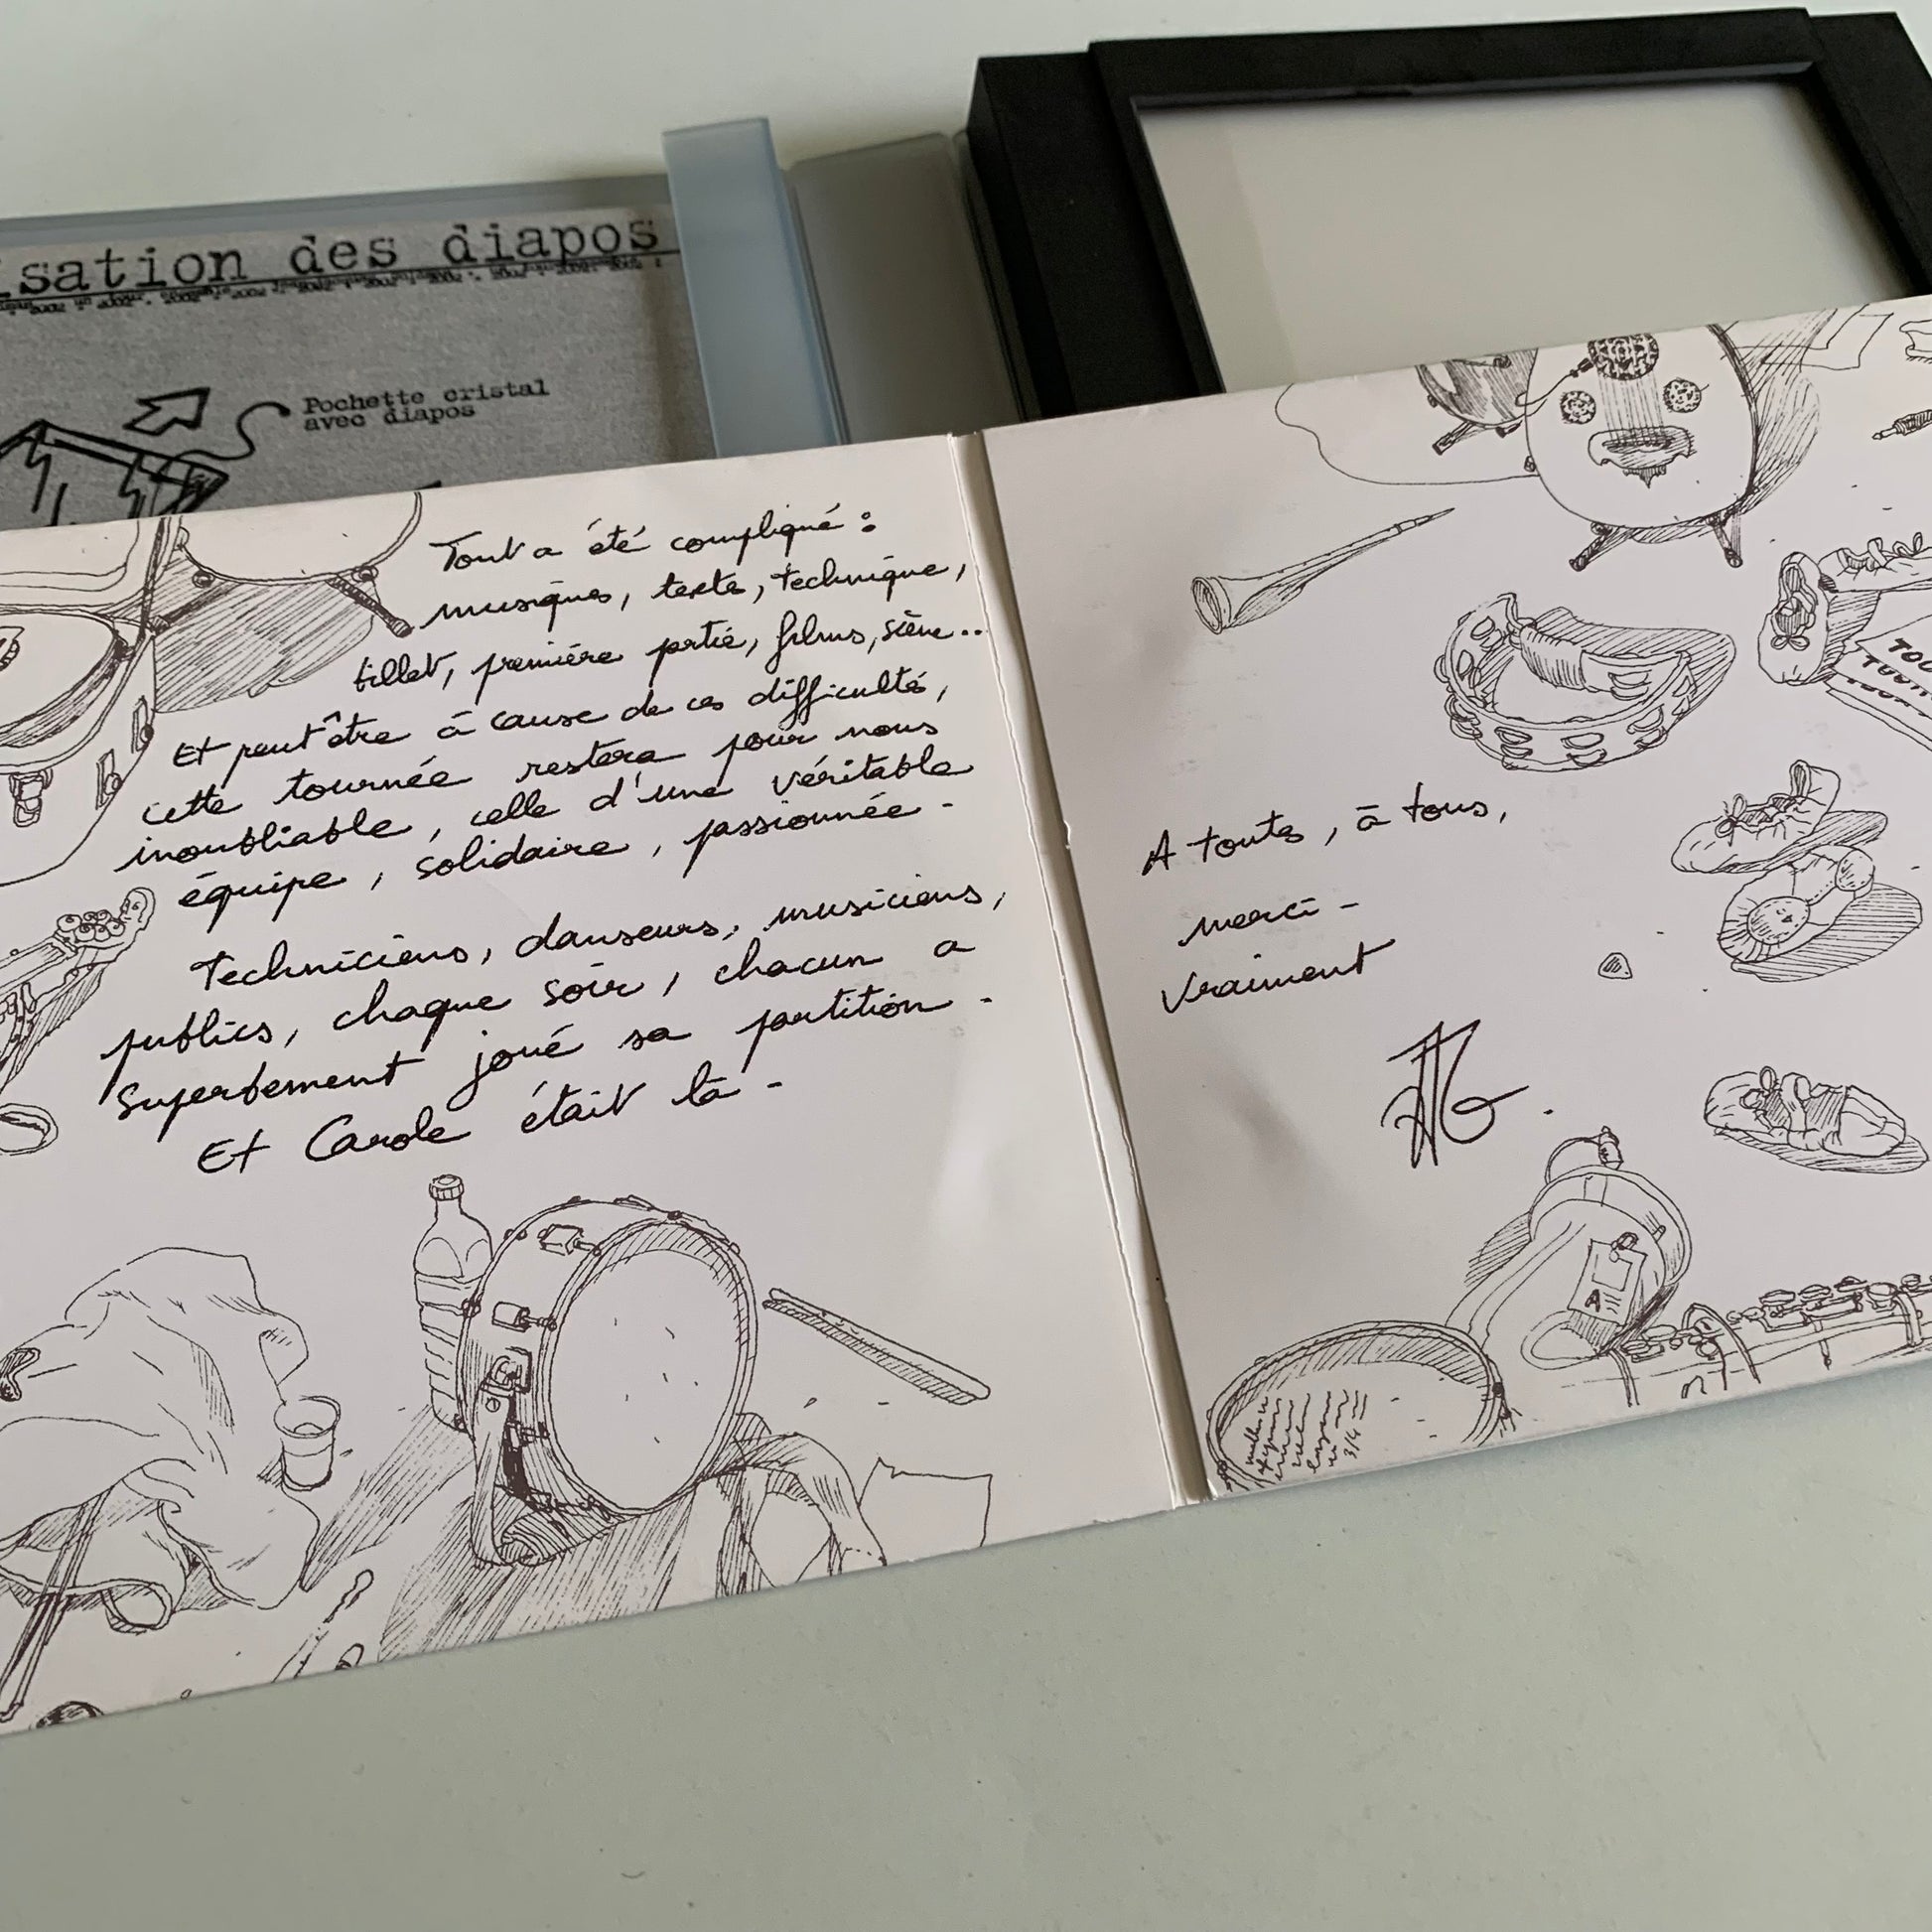 isation des diapos
Pochette cristal
avec diapos
Tout a été compliqué :
musiques, texte, technique,
billet, première partie, films, scène..
Et peut être à cause de ces difficultés,
cette tournée restera pour nous
inoubliable, celle d'une véritable
équipe, solidaire, passionnée -
Techniciens, danseurs, musiciens,
publics, chaque soir, chacun a
superbement joué sa partition -
Et Carole était là -
A toutes, à tous,
merci -
vraiment
A
3/4